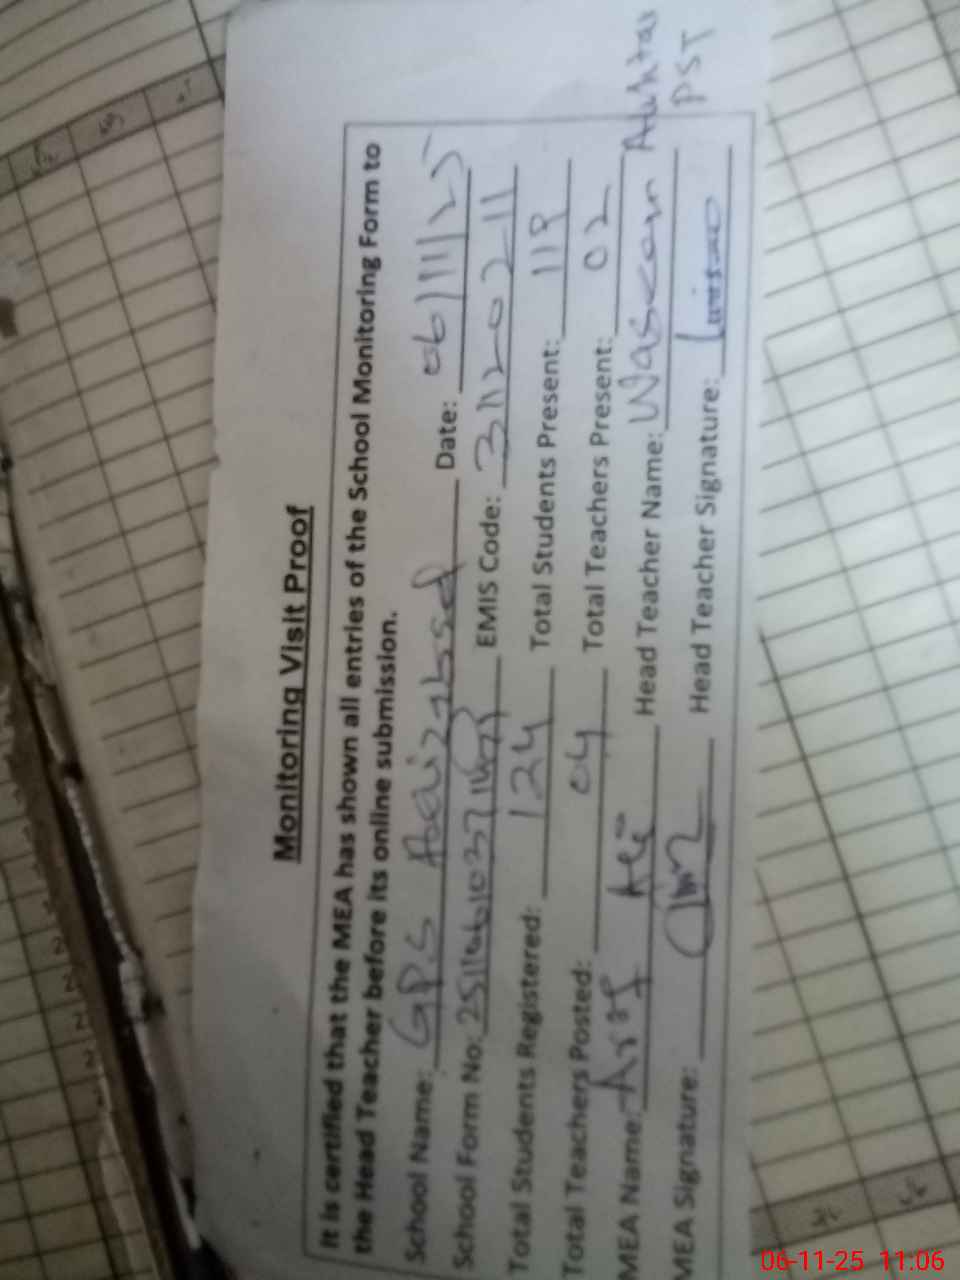 Monitoring Visit Proof
It is certified that the MEA has shown all entries of the School Monitoring Form to
the Head Teacher before its online submission.
School Name: GPS Date: 06/11/25
School Form No: EMIS Code: 31120211
Total Students Registered: 124 Total Students Present: 118
Total Teachers Posted: 04 Total Teachers Present: 02
MEA Name: Arif Ali Head Teacher Name: Waseem Akhtar
PST
MEA Signature: Head Teacher Signature:
06-11-25 11:06